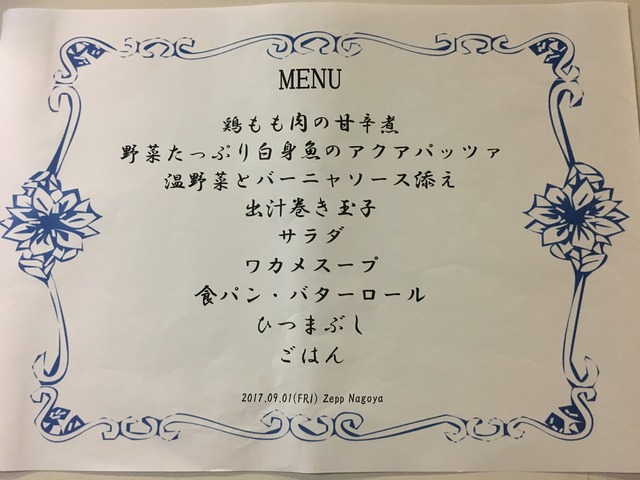 MENU
鶏もも肉の甘辛煮
野菜たっぷり白身魚のアクアパッツァ
温野菜とバーニャソース添え
出汁巻き玉子
サラダ
ワカメスープ
食パン・バターロール
ひつまぶし
ごはん
2017.09.01(FRI) Zepp Nagoya